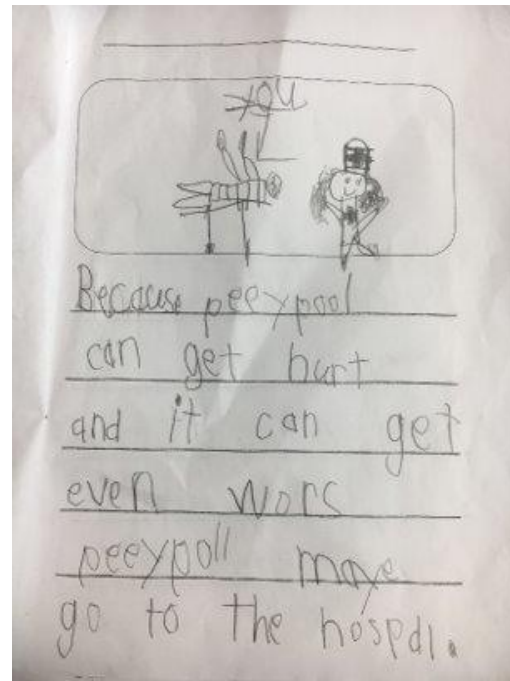 you
Because peeypool
can get hurt
and it can get
even wors
peeypoll maye
go to the hospdl.